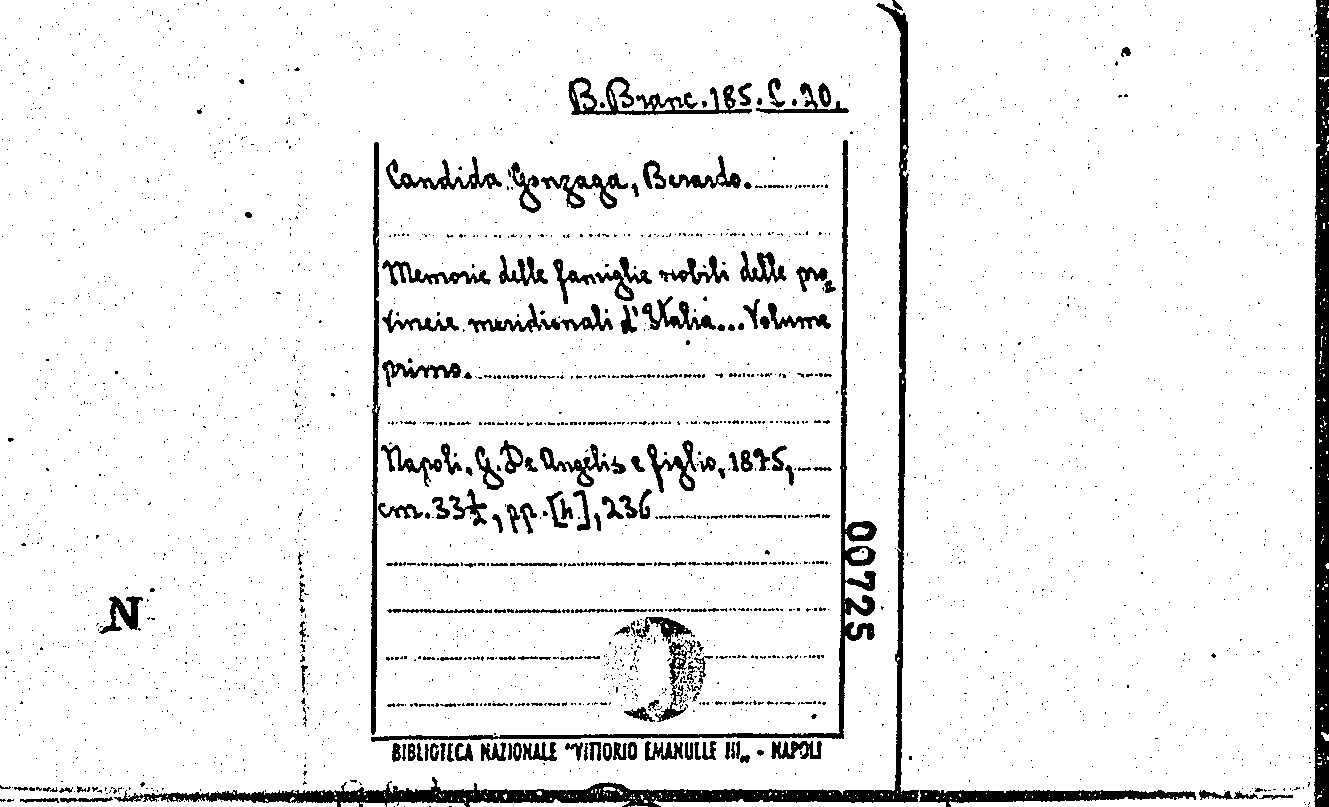 B.Branc.185.C.20.
Candida Gonzaga, Berardo.
Memorie delle famiglie nobili delle pro=
vincie meridionali d'Italia...Volume
primo.
Napoli, G. De Angelis e figlio, 1875,
cm. 33½, pp. [4], 236
00725
N
BIBLIOTECA NAZIONALE "VITTORIO EMANUELE III„ - NAPOLI